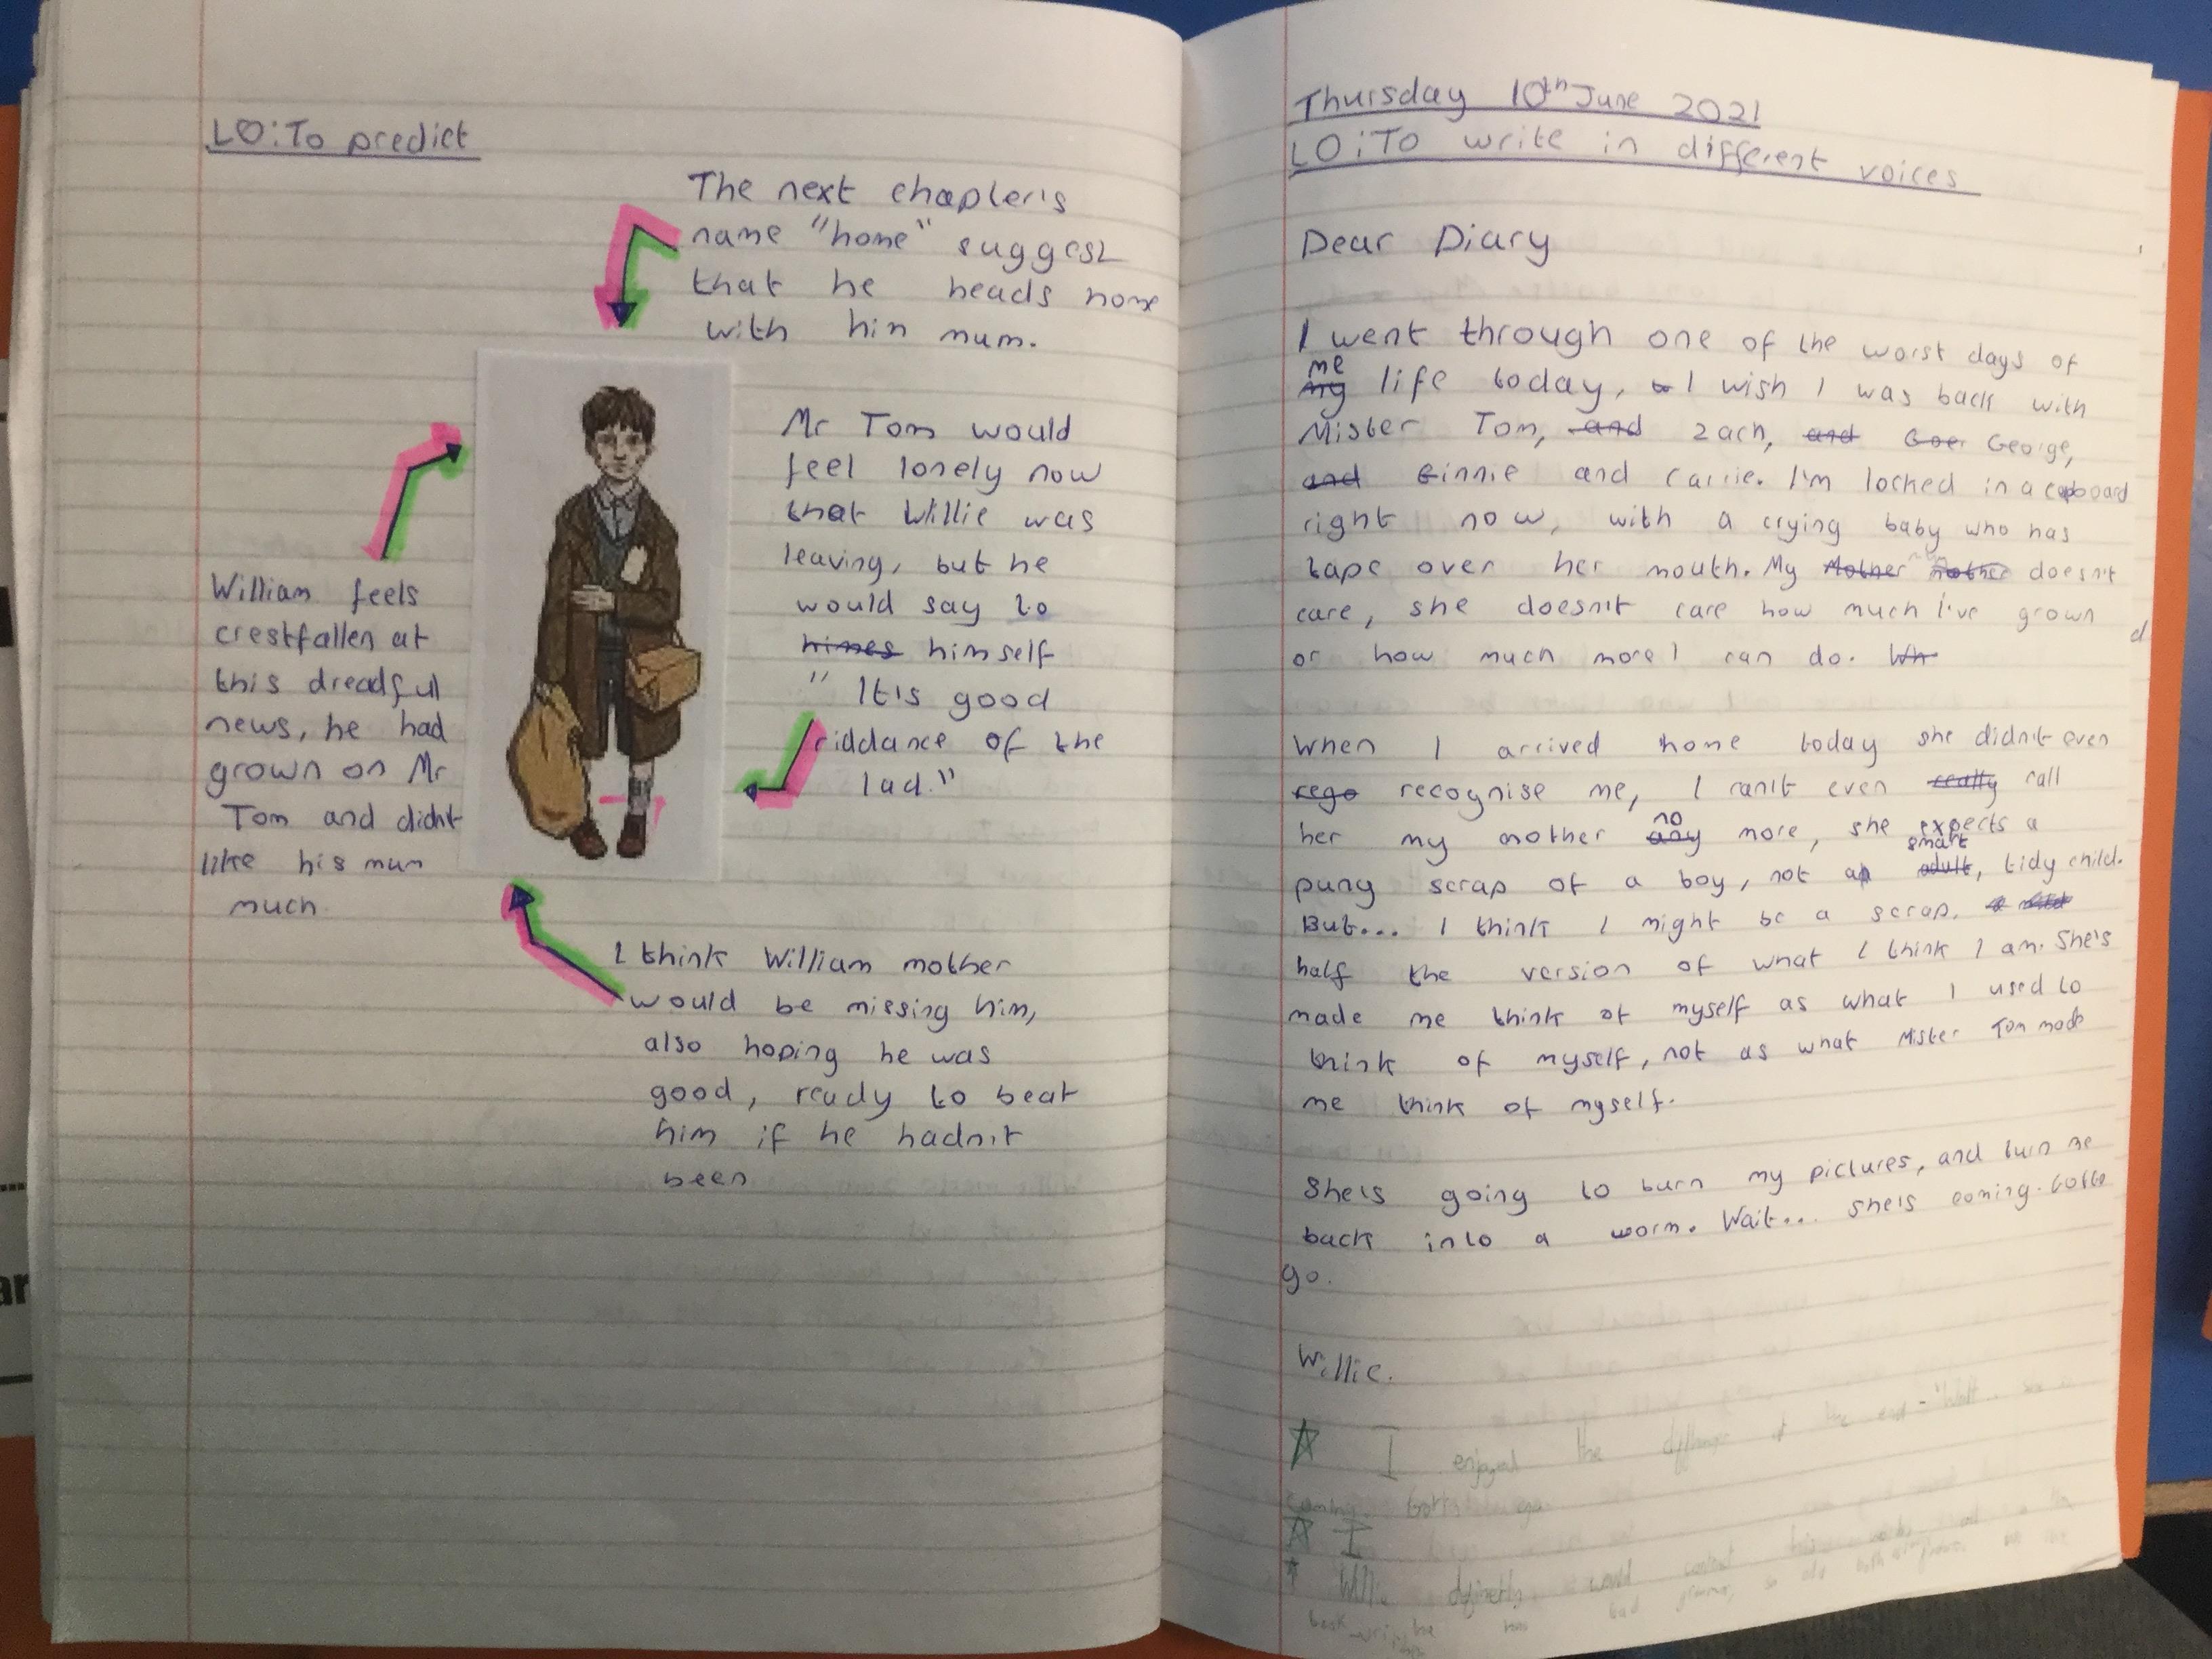 LO: To predict
The next chapter's
name "home" suggest
that he heads home
with hin mum.
Mr Tom would
feel lonely now
that Willie was
leaving, but he
would say to
himes himself
" It's good
riddance of the
lad."
William feels
crestfallen at
this dreadful
news, he had
grown on Mr
Tom and didn't
like his mum
much
I think William mother
would be missing him,
also hoping he was
good, ready to beat
him if he hadn't
been
Thursday 10th June 2021
LO: To write in different voices
Dear Diary
I went through one of the worst days of
me
my life today, I wish I was back with
Mister Tom, and Zach, and Goer George,
and Ginnie and Carrie. I'm locked in a cupboard
right now, with a crying baby who has
tape over her mouth. My Mother Mother doesn't
care, she doesn't care how much I've grown
or how much more I can do. Wh
When I arrived home today she didn't even
rego recognise me, I can't even really call
no
her my mother any more, she expects a
smart
puny scrap of a boy, not a adult, tidy child.
But... I think I might be a scrap,
half the version of what I think I am. She's
made me think of myself as what I used to
think of myself, not as what Mister Tom made
me think of myself.
She's going to burn my pictures, and turn me
back into a worm. Wait... she's coming. Gotta
go.
Willie.
I enjoyed the at the end - "Wait...
coming. Gotta go
I
Willie definetly would
he has bad grammar, so